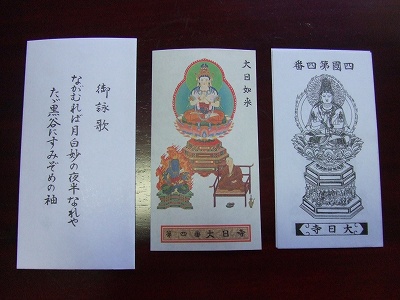 御詠歌
ながむれば月白妙の夜半なれや
たゞ黒谷にすみぞめの袖
大日如来
第四番大日寺
四國第四番
大日寺